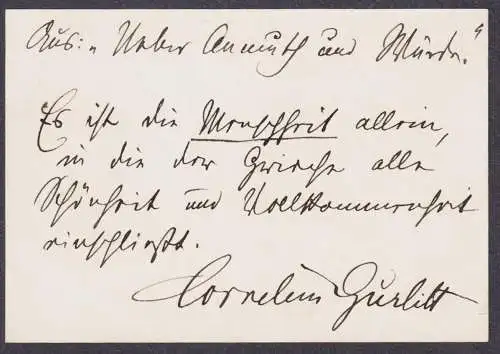 Aus: „Ueber Anmuth und Würde.“
Es ist die Menschheit allein,
in die der Grieche alle
Schönheit und Vollkommenheit
einschließt.
Cornelius Gurlitt